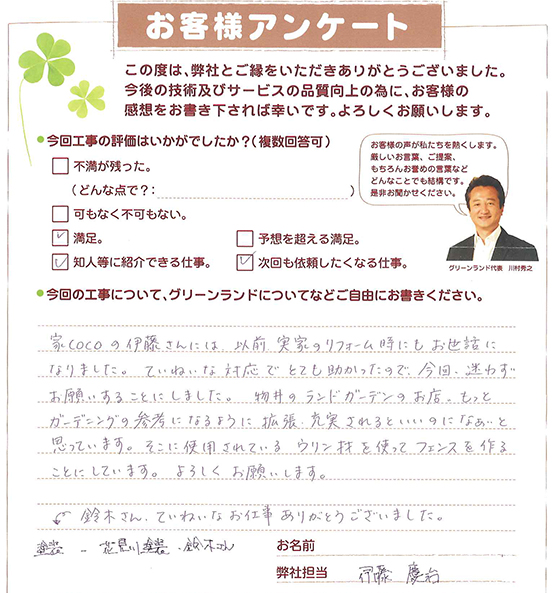 お客様アンケート
この度は、弊社とご縁をいただきありがとうございました。
今後の技術及びサービスの品質向上の為に、お客様の
感想をお書き下されば幸いです。よろしくお願いします。
●今回工事の評価はいかがでしたか?(複数回答可)
不満が残った。
(どんな点で?: )
可もなく不可もない。
満足。
予想を超える満足。
知人等に紹介できる仕事。
次回も依頼したくなる仕事。
お客様の声が私たちを熱くします。
厳しいお言葉、ご提案、
もちろんお誉めの言葉など
どんなことでも結構です。
是非お聞かせください。
グリーンランド代表 川村秀之
●今回の工事について、グリーンランドについてなどご自由にお書きください。
家COCOの伊藤さんには、以前、実家のリフォーム時にもお世話に
なりました。ていねいな対応でとても助かったので、今回、迷わず
お願いすることにしました。物井のランドガーデンのお店、もっと
ガーデニングの参考になるように拡張、充実されるといいのになあ…と
思っています。そこに使用されているウリン材を使ってフェンスを作る
ことにしています。よろしくお願いします。
鈴木さん、ていねいなお仕事ありがとうございました。
塗装 - 花見川塗装・鈴木さん
お名前
弊社担当 伊藤 慶治